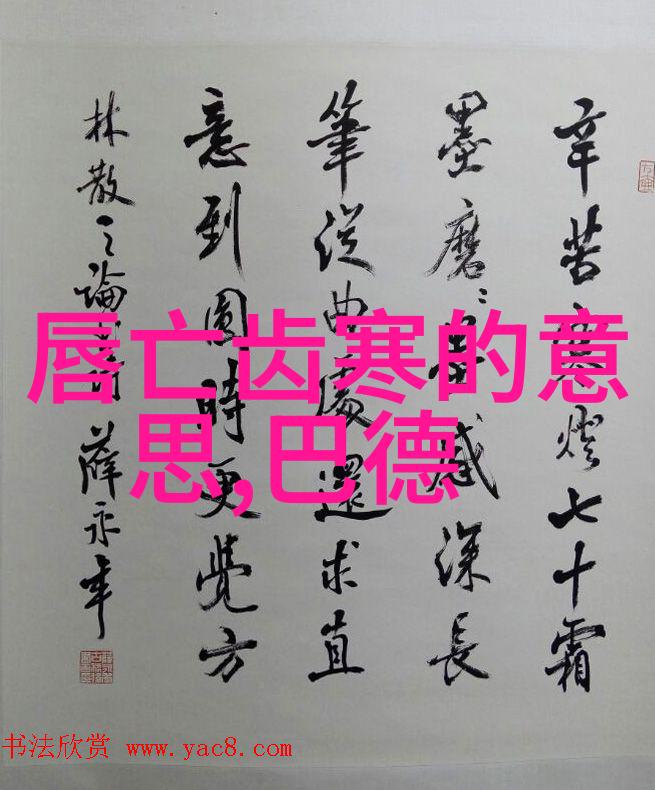 唇亡齿寒的意
思,巴德
辛苦寒燈七十霜
墨磨〻墨感深長
筆從曲處還求直
意到圓時更覺方
林散之論書詩 薛永年
书法欣赏 www.yac8.com